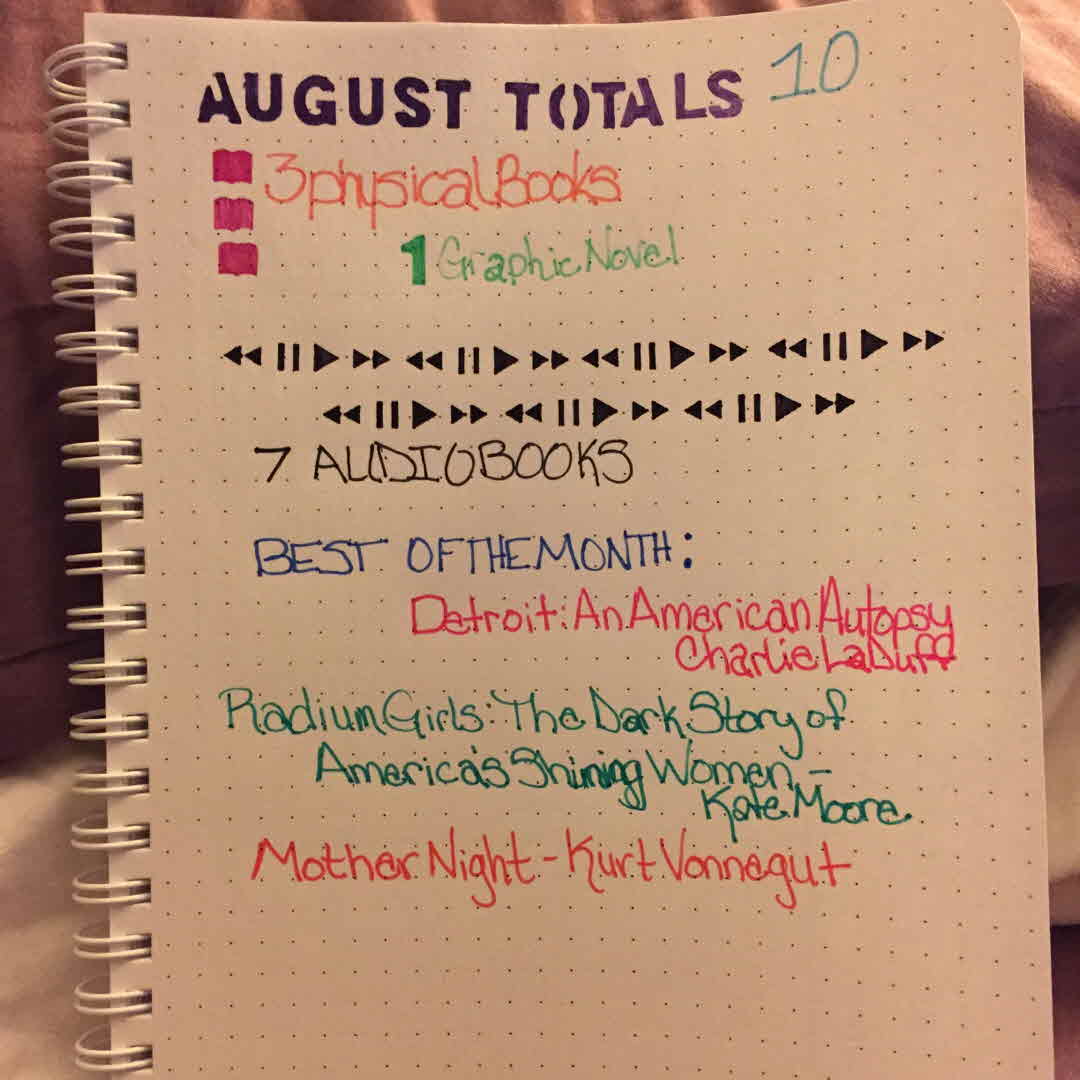 AUGUST TOTALS 10
3 physical Books
1 Graphic Novel
7 AUDIOBOOKS
BEST OF THE MONTH:
Detroit: An American Autopsy
Charlie LaDuff
Radium Girls: The Dark Story of
America's Shining Women -
Kate Moore
Mother Night - Kurt Vonnegut